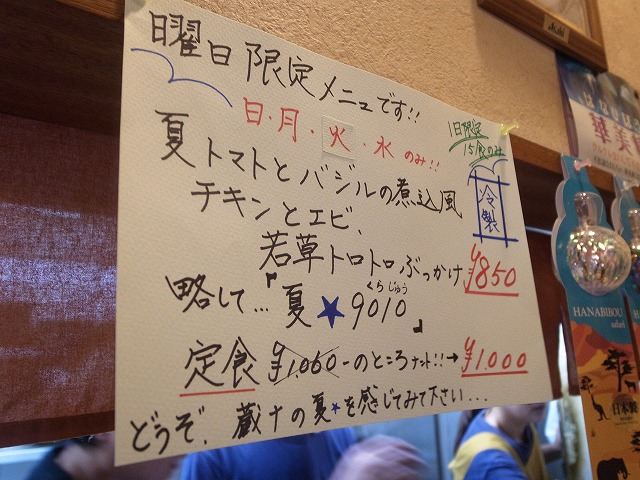 曜日限定メニューです!!
日・月・火・水のみ!!
1日限定
15食のみ
夏トマトとバジルの煮込風
冷製
チキンとエビ、
若草トロトロぶっかけ ¥850
略して…『夏★9010』
くらじゅう
定食 ¥1.060-のところナント!!→¥1.000
どうぞ、蔵十の夏★を感じてみて下さい…
Asahi
HANABIBOU
safari
日本橋